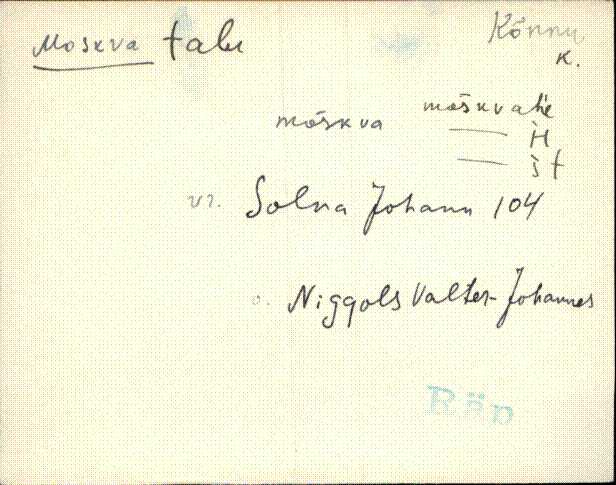 Moskva talu Kõnnu
k.
mòskva mòskvahe
— H
— st
vr. Solna Johann 104
o. Niggols Valter-Johannes
Räp